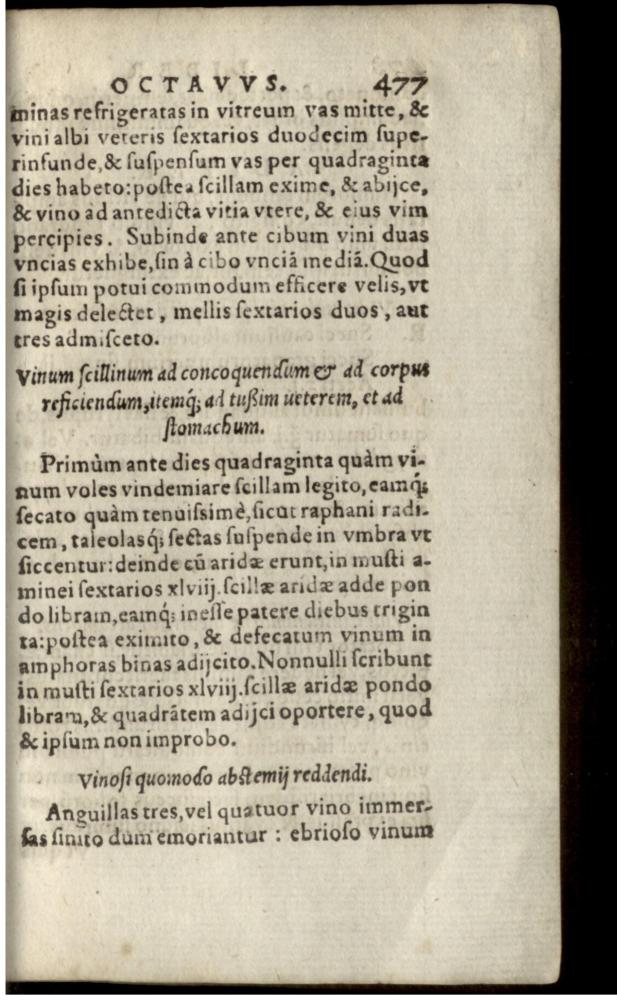 OCTAVVS. 477
minas refrigeratas in vitreum vas mitte, &
vini albi veteris ſextarios duodecim ſupe-
rinfunde, & ſuſpenſum vas per quadraginta
dies habeto: poſtea ſcillam exime, & abijce,
& vino ad antedicta vitia vtere, & eius vim
percipies. Subinde ante cibum vini duas
vncias exhibe, ſin à cibo vnciã mediã. Quod
ſi ipſum potui commodum efficere velis, vt
magis delectet, mellis ſextarios duos, aut
tres admiſceto.
Vinum ſcillinum ad concoquendum & ad corpus
reficiendum, itemq́; ad tußim ueterem, et ad
ſtomachum.
Primùm ante dies quadraginta quàm vi-
num voles vindemiare ſcillam legito, eamq́;
ſecato quàm tenuiſsimè, ſicut raphani radi-
cem, taleolasq́; ſectas ſuſpende in vmbra vt
ſiccentur: deinde cũ aridæ erunt, in muſti a-
minei ſextarios xlviij. ſcillæ aridæ adde pon
do libram, eamq́; ineſſe patere diebus trigin
ta: poſtea eximito, & defecatum vinum in
amphoras binas adijcito. Nonnulli ſcribunt
in muſti ſextarios xlviij. ſcillæ aridæ pondo
libram, & quadrãtem adijci oportere, quod
& ipſum non improbo.
Vinoſi quomodo abſtemij reddendi.
Anguillas tres, vel quatuor vino immer-
ſas ſinito dum emoriantur : ebrioſo vinum